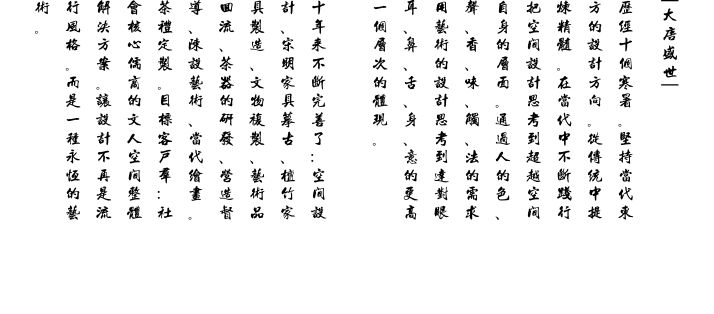 大唐盛世
歷經十個寒暑。堅持當代東
方的設計方向。從傳統中提
煉精髓。在當代中不斷踐行
把空間設計思考到超越空間
自身的層面。通過人的色、
聲、香、味、觸、法的需求
用藝術的設計思考到達對眼
耳、鼻、舌、身、意的更高
一個層次的體現。
十年來不斷完善了：空間設
計、宋明家具摹古、植竹家
具製造、文物複製、藝術品
回流、茶器的研發、營造督
導、陳設藝術、當代繪畫。
茶禮定製。目標客戶群：社
會核心儒商的文人空間整體
解決方案。讓設計不再是流
行風格。而是一種永恆的藝
術。